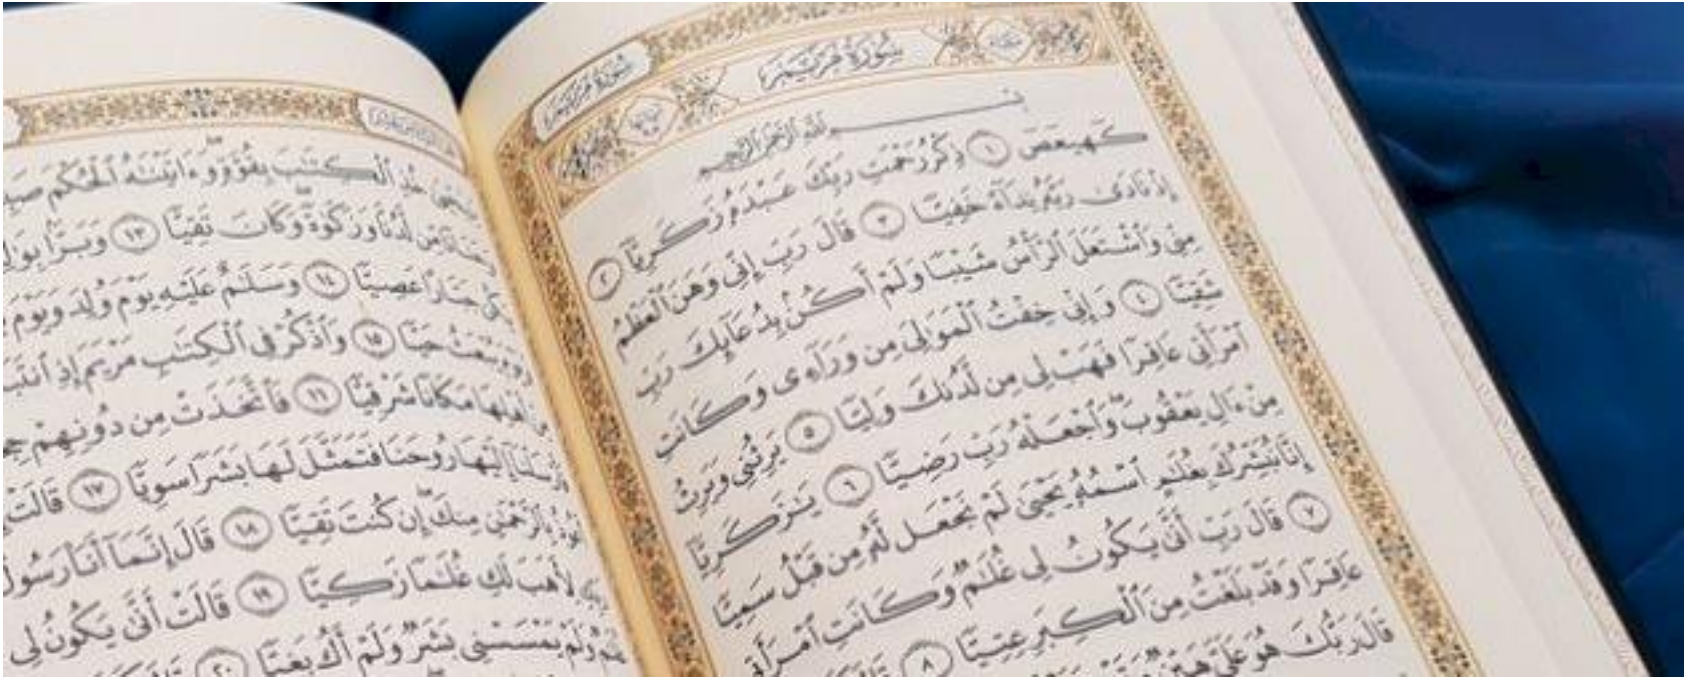 سُورَةُ مَرْيَمَ
سُورَةُ مَرْيَمَ
بِسْمِ ٱللَّهِ ٱلرَّحْمَٰنِ ٱلرَّحِيمِ
كٓهيعٓصٓ ١ ذِكْرُ رَحْمَتِ رَبِّكَ عَبْدَهُۥ زَكَرِيَّآ ٢
إِذْ نَادَىٰ رَبَّهُۥ نِدَآءً خَفِيًّا ٣ قَالَ رَبِّ إِنِّي وَهَنَ ٱلْعَظْمُ
مِنِّي وَٱشْتَعَلَ ٱلرَّأْسُ شَيْبًا وَلَمْ أَكُنۢ بِدُعَآئِكَ رَبِّ
شَقِيًّا ٤ وَإِنِّي خِفْتُ ٱلْمَوَٰلِيَ مِن وَرَآءِي وَكَانَتِ
ٱمْرَأَتِي عَاقِرًا فَهَبْ لِي مِن لَّدُنكَ وَلِيًّا ٥ يَرِثُنِي وَيَرِثُ
مِنْ ءَالِ يَعْقُوبَۖ وَٱجْعَلْهُ رَبِّ رَضِيًّا ٦ يَٰزَكَرِيَّآ
إِنَّا نُبَشِّرُكَ بِغُلَٰمٍ ٱسْمُهُۥ يَحْيَىٰ لَمْ نَجْعَل لَّهُۥ مِن قَبْلُ سَمِيًّا
٧ قَالَ رَبِّ أَنَّىٰ يَكُونُ لِي غُلَٰمٌ وَكَانَتِ ٱمْرَأَتِي
عَاقِرًا وَقَدْ بَلَغْتُ مِنَ ٱلْكِبَرِ عِتِيًّا ٨
قَالَ رَبُّكَ هُوَ عَلَيَّ هَيِّنٌ
خُذِ ٱلْكِتَٰبَ بِقُوَّةٍۖ وَءَاتَيْنَٰهُ ٱلْحُكْمَ
مِّن لَّدُنَّا وَزَكَوٰةًۖ وَكَانَ تَقِيًّا ١٣ وَبَرًّۢا
عَصِيًّا ١٤ وَسَلَٰمٌ عَلَيْهِ يَوْمَ وُلِدَ وَيَوْمَ
يُبْعَثُ حَيًّا ١٥ وَٱذْكُرْ فِي ٱلْكِتَٰبِ مَرْيَمَ إِذِ
أَهْلِهَا مَكَانًا شَرْقِيًّا ١٦ فَٱتَّخَذَتْ مِن دُونِهِمْ
إِلَيْهَا رُوحَنَا فَتَمَثَّلَ لَهَا بَشَرًا سَوِيًّا ١٧ قَالَتْ
بِٱلرَّحْمَٰنِ مِنكَ إِن كُنتَ تَقِيًّا ١٨ قَالَ إِنَّمَآ أَنَا۠ رَسُولُ
لِأَهَبَ لَكِ غُلَٰمًا زَكِيًّا ١٩ قَالَتْ أَنَّىٰ يَكُونُ لِي
وَلَمْ يَمْسَسْنِي بَشَرٌ وَلَمْ أَكُ بَغِيًّا ٢٠